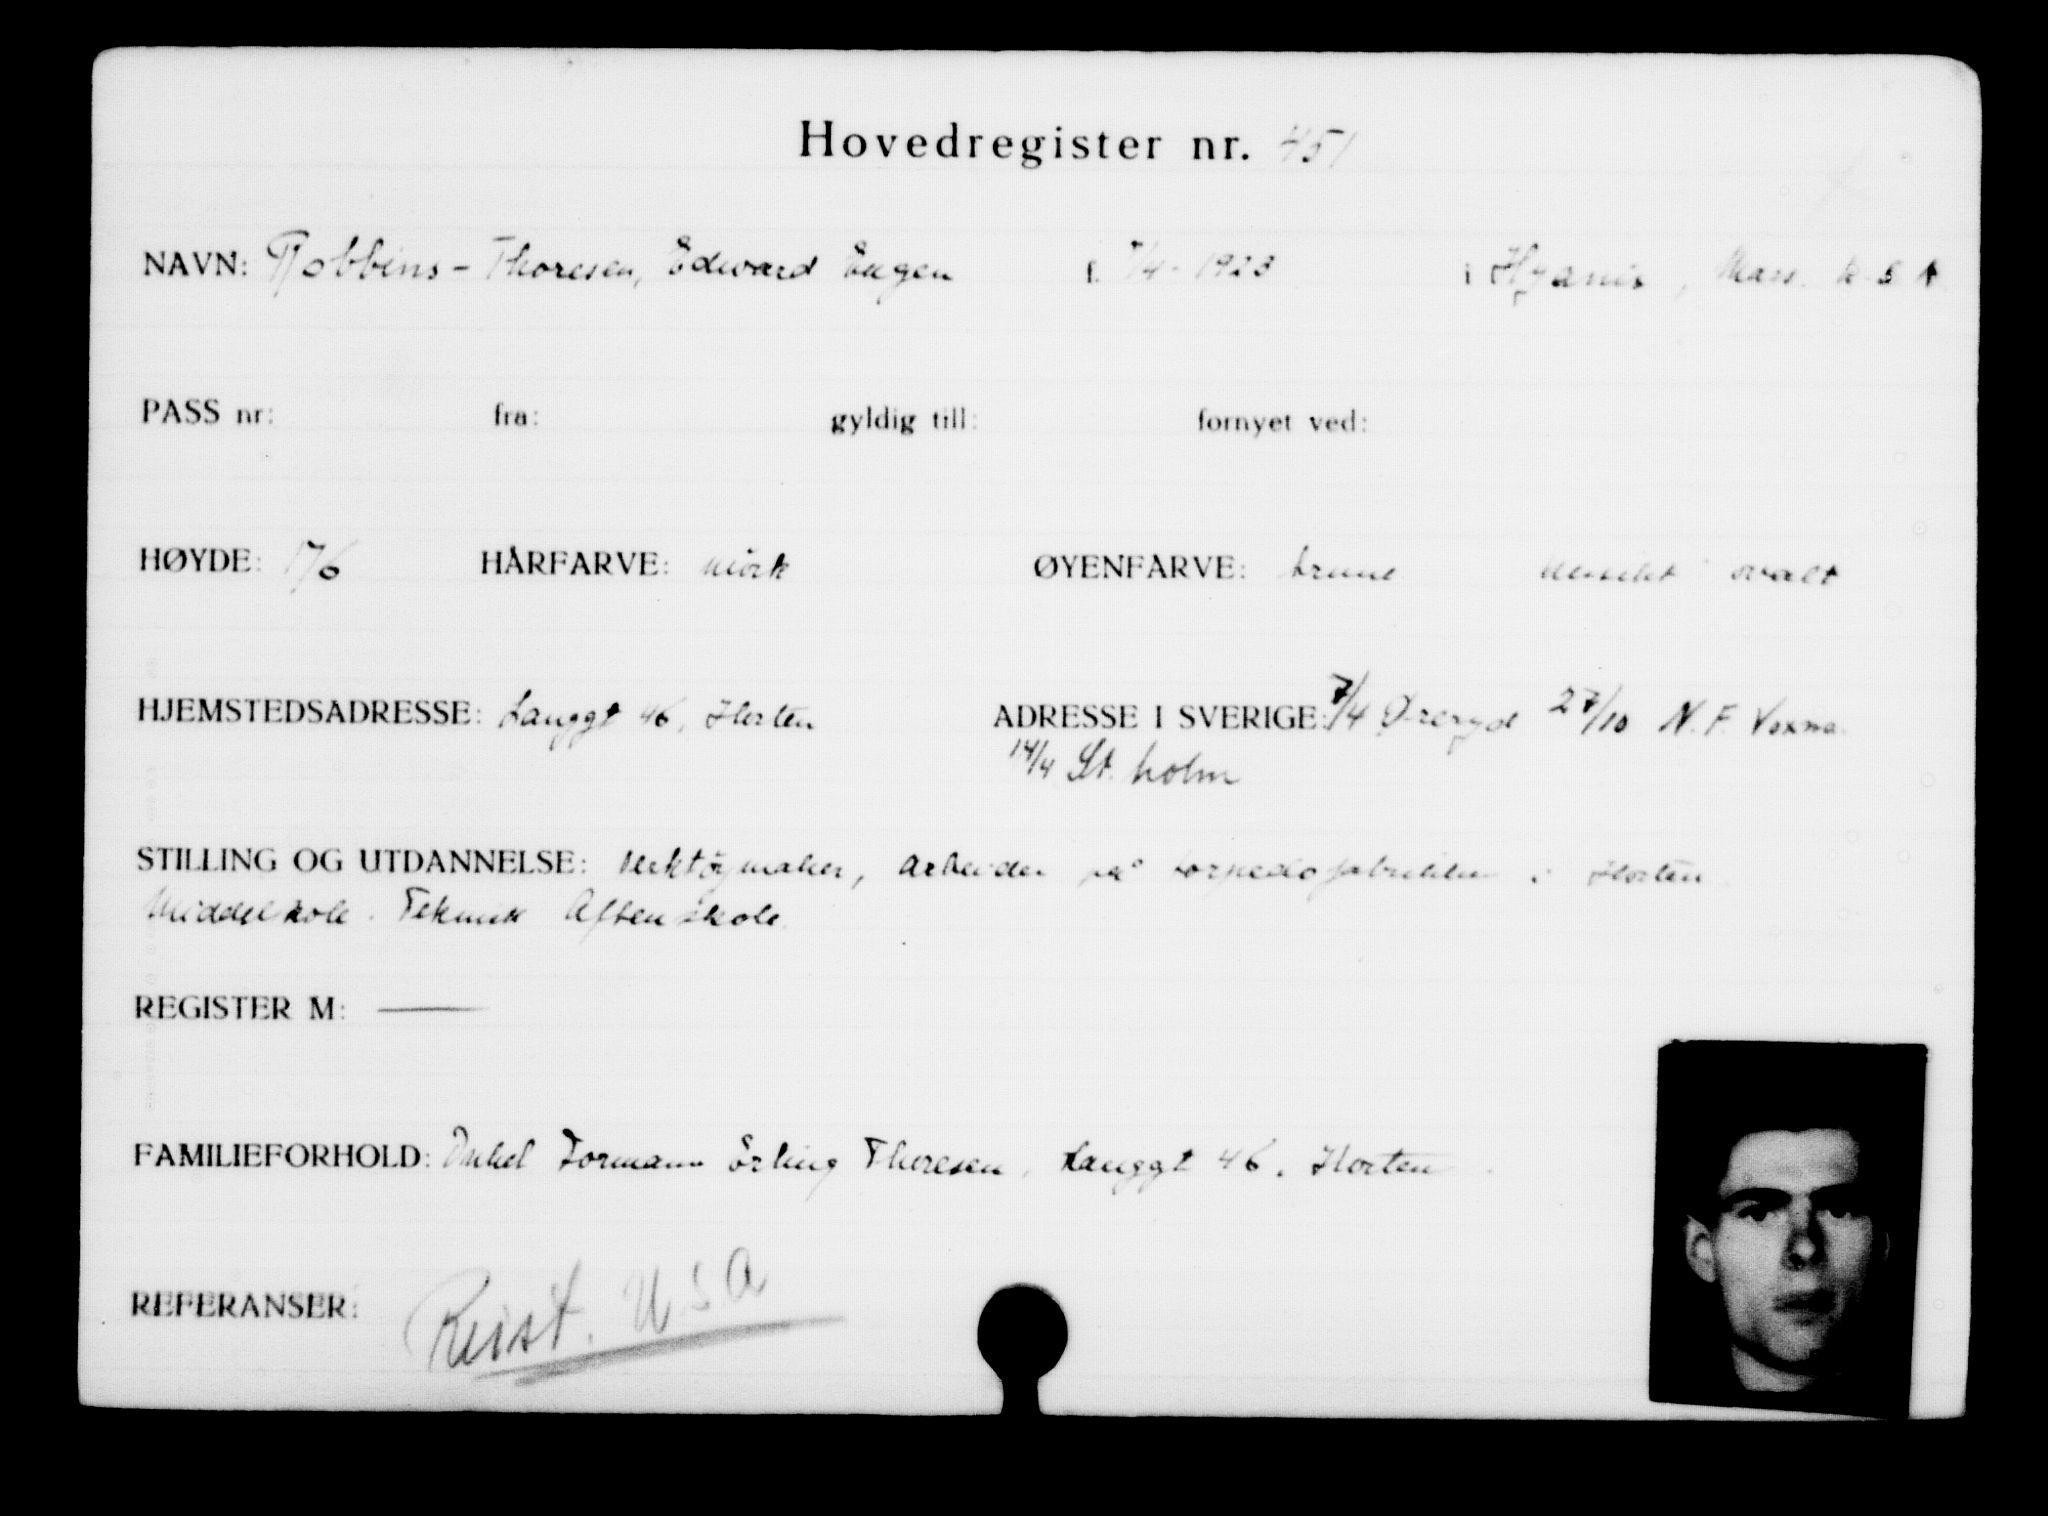 Hovedregister nr. 451
NAVN: Robbins - Thoresen, Edward Eugen f. 7/4 - 1923 i Hyanis, Mass. U S A
PASS nr: fra: gyldig till: fornyet ved:
HØYDE: 176 HÅRFARVE: mörk ØYENFARVE: brune Ansikt ovalt
HJEMSTEDSADRESSE: Langgt 46, Horten ADRESSE I SVERIGE: 7/4 Öreryd 27/10 N.F. Voxna
14/4 St. holm
STILLING OG UTDANNELSE: Verktöymaker, arbeider på torpedofabrikken i Horten
Middelskole. Teknisk Aftenskole.
REGISTER M: —
FAMILIEFORHOLD: Onkel Formann Erling Thoresen, Langgt 46, Horten
REFERANSER: Reist. USA